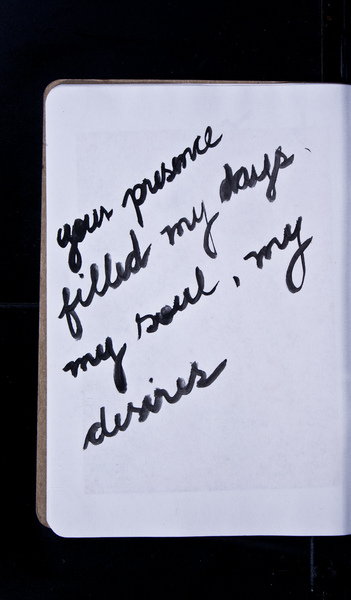 your presence
filled my days.
my soul, my
desires